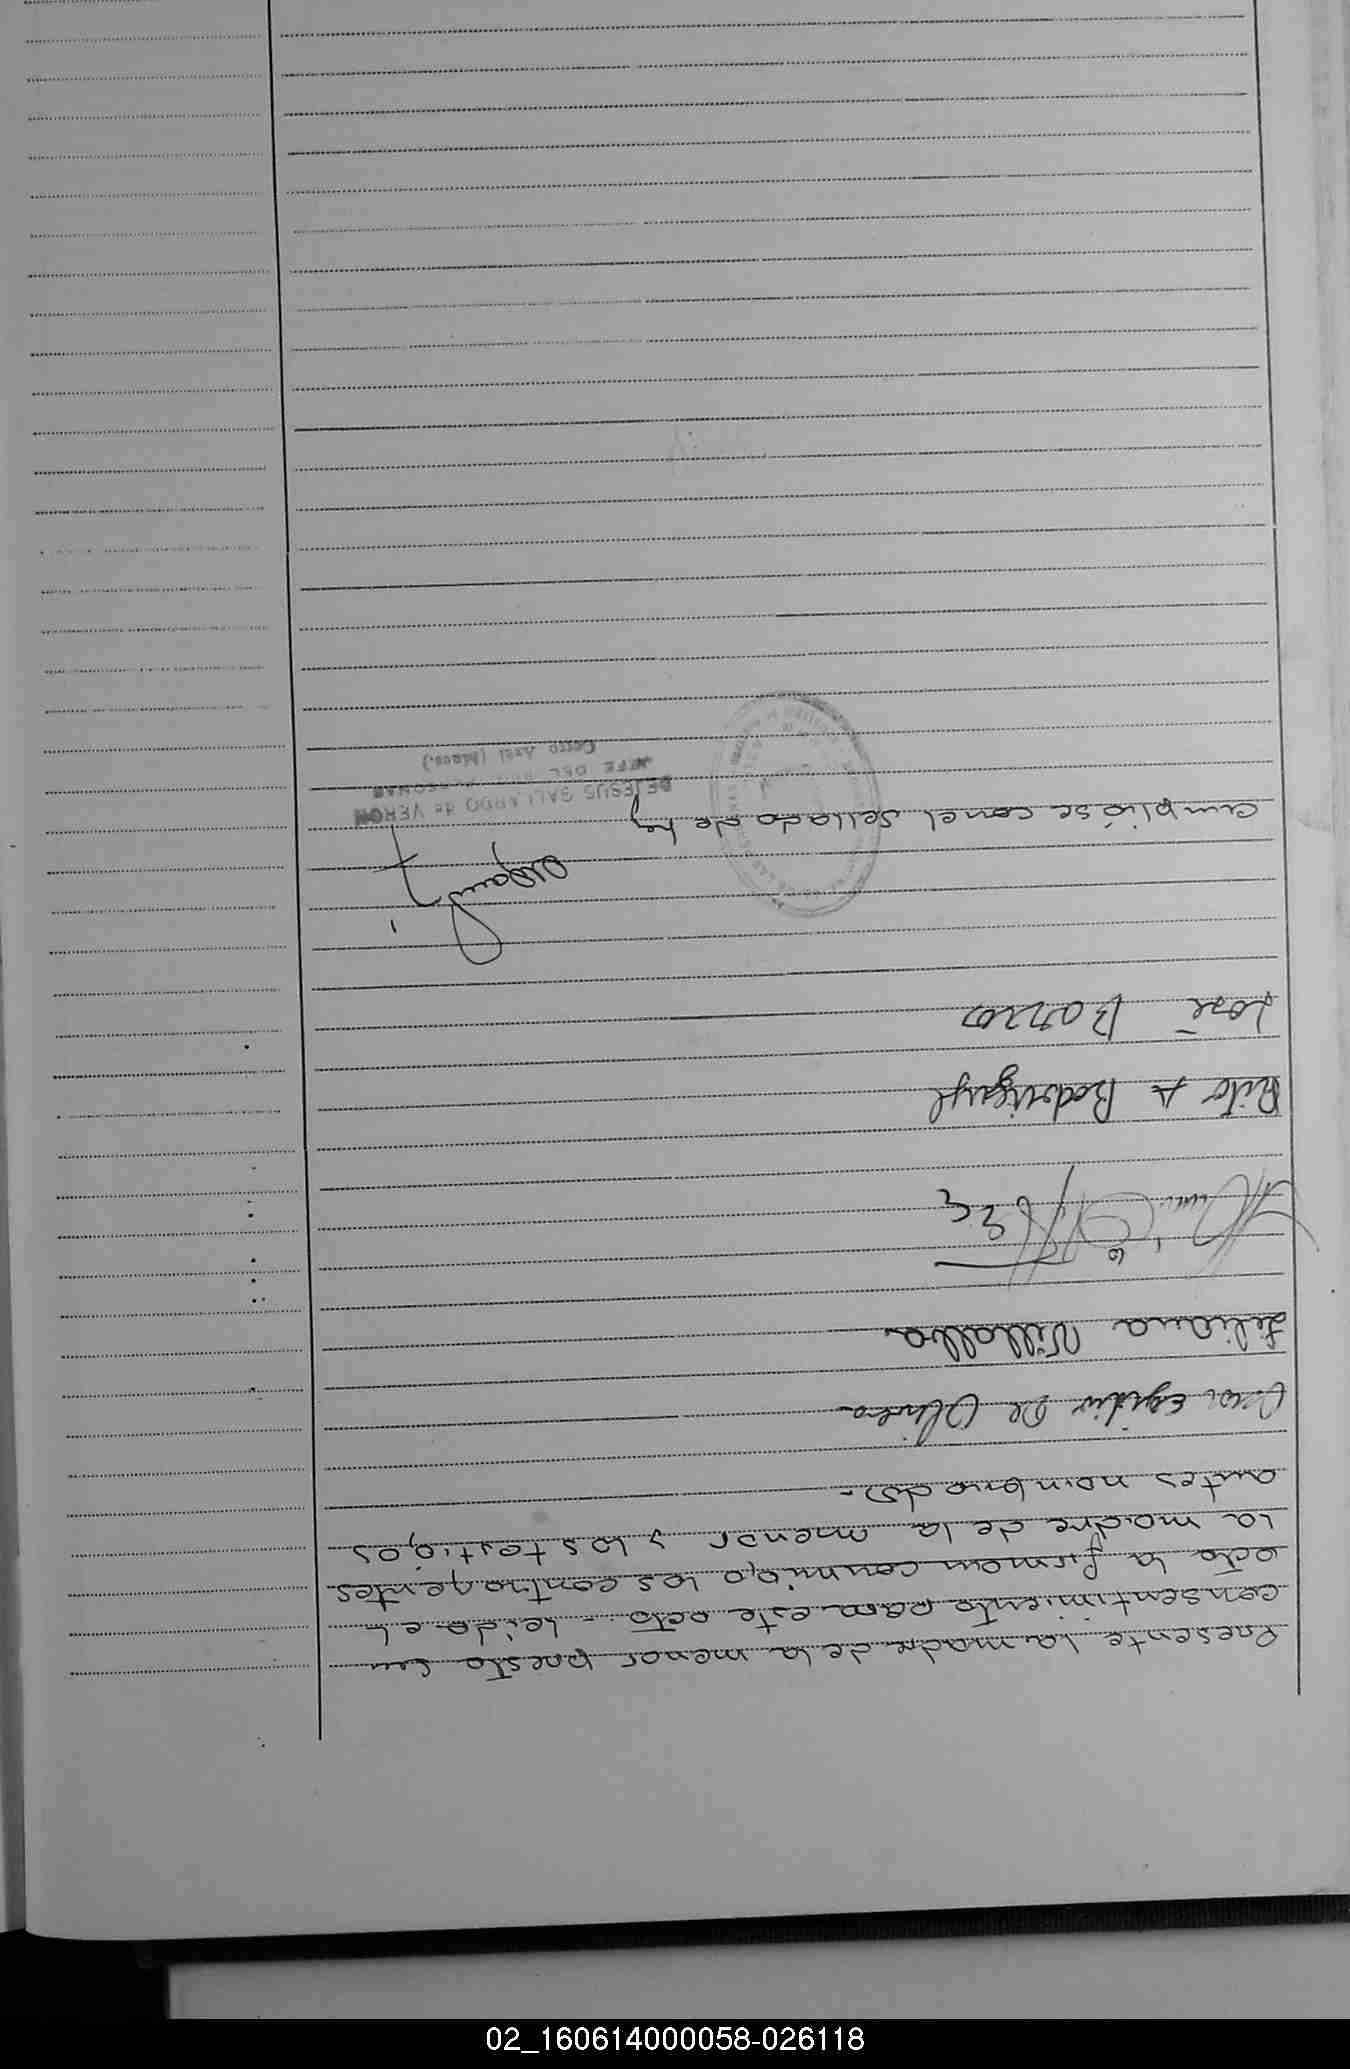 Presente la madre de la menor presto su
consentimiento para este acto - leida el
acta la firman conmigo los contrayentes
la madre de la menor y los testigos
antes nombrados.-
Egidio De Olivera
Liliana Villalba
Rito A Rodriguez
José Barrios
Cumpliose con el sellado de ley
DEJESUS GALLARDO de VERON
JEFE DEL
Cerro Azul (Mnes.)
02_160614000058-026118